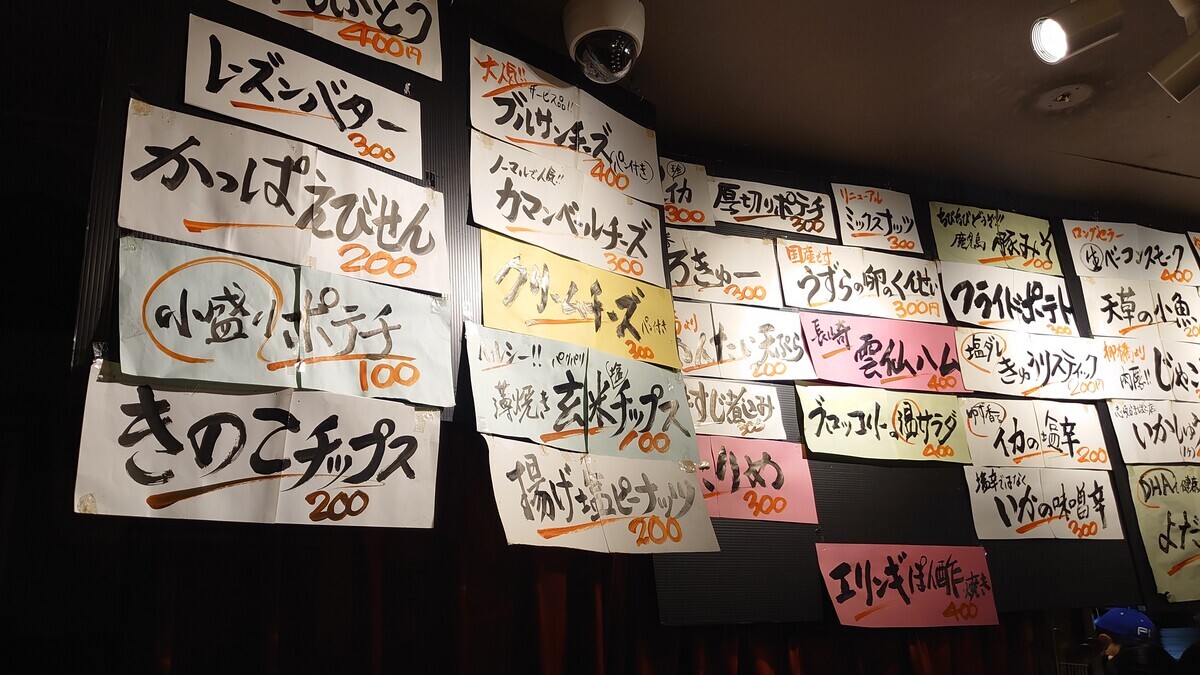 400円
レーズンバター
300
かっぱえびせん
200
小盛り ポテチ
100
きのこチップス
200
大人気!!
サービス品!!
ブルサンチーズ
パン付き
400
ノーマルで人気!!
カマンベールチーズ
300
クリームチーズ
パン付き
300
ヘルシー!! パリパリ
薄焼き 玄米チップス
塩
100
揚げ塩ピーナッツ
200
イカ
300
ろきゅー
300
たい天ぷら
200
すじ煮込み
りめ
300
厚切りポテチ
300
国産です
うずらの卵のくんせい
300円
長崎
雲仙ハム
400
ブロッコリーの酒サラダ
400
エリンギぽん酢焼き
400
リニューアル
ミックスナッツ
300
ちびちびどうぞ!!
鹿児島 豚みそ
200
フライドポテト
300
塩ダレ
きゅうりスティック
200円
ゆず香る
イカの塩辛
200
塩辛ではなく
いかの味噌辛
300
ロングセラー
生ベーコンスモーク
400
天草の小魚
肉厚!!
じゃこ
いか
DHAで健康
よだ